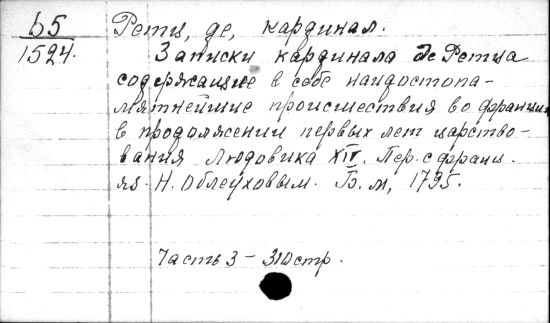 b5 Ретц, де, кардинал.
1524. Записки кардинала де Ретца
содержащие в себе найдостопа-
мятнейшие происшествия во франции
в продолжении первых лет царство-
вания Людовика XIV. Пер. с франц.
яз. Н. Облеуховым. Б.м, 1795.
Часть 3 - 310 стр.